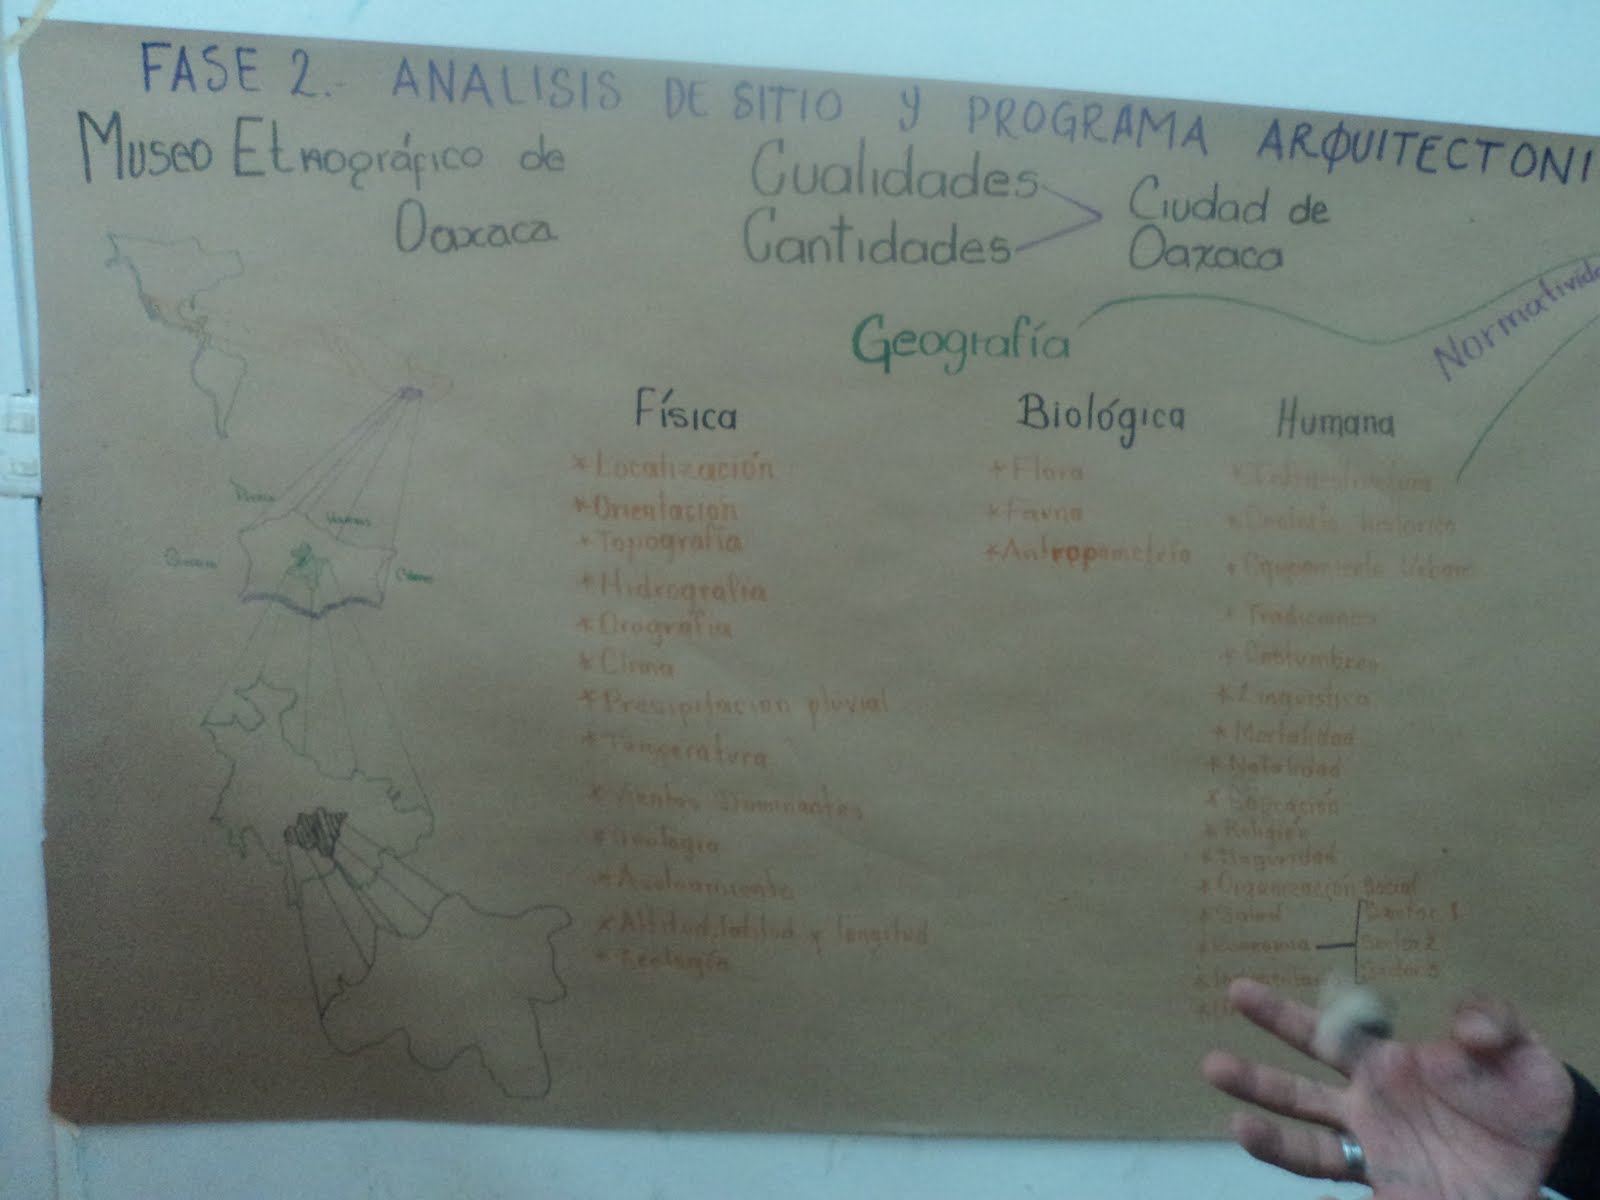 FASE 2.- ANALISIS DE SITIO Y PROGRAMA ARQUITECTONI
Museo Etnográfico de
Oaxaca
Cualidades
Cantidades
Ciudad de
Oaxaca
Geografía
Normativid
Física
*Localización
*Orientación
*Topografía
*Hidrografía
*Orografía
*Clima
*Presipitacion pluvial
*Temperatura
*Vientos Dominantes
*Asoleamiento
*Altitud, latitud y longitud
Biológica
*Flora
*Fauna
*Antropometría
Humana
*Infraestructura
*Contexto historico
*Equipamiento Urbano
*Tradiciones
*Costumbres
*Linguistica
*Mortalidad
*Natalidad
*Educación
*Religión
*Seguridad
*Organización Social
*Salud
*Economia
Sector 1
Sector 2
Sector 3